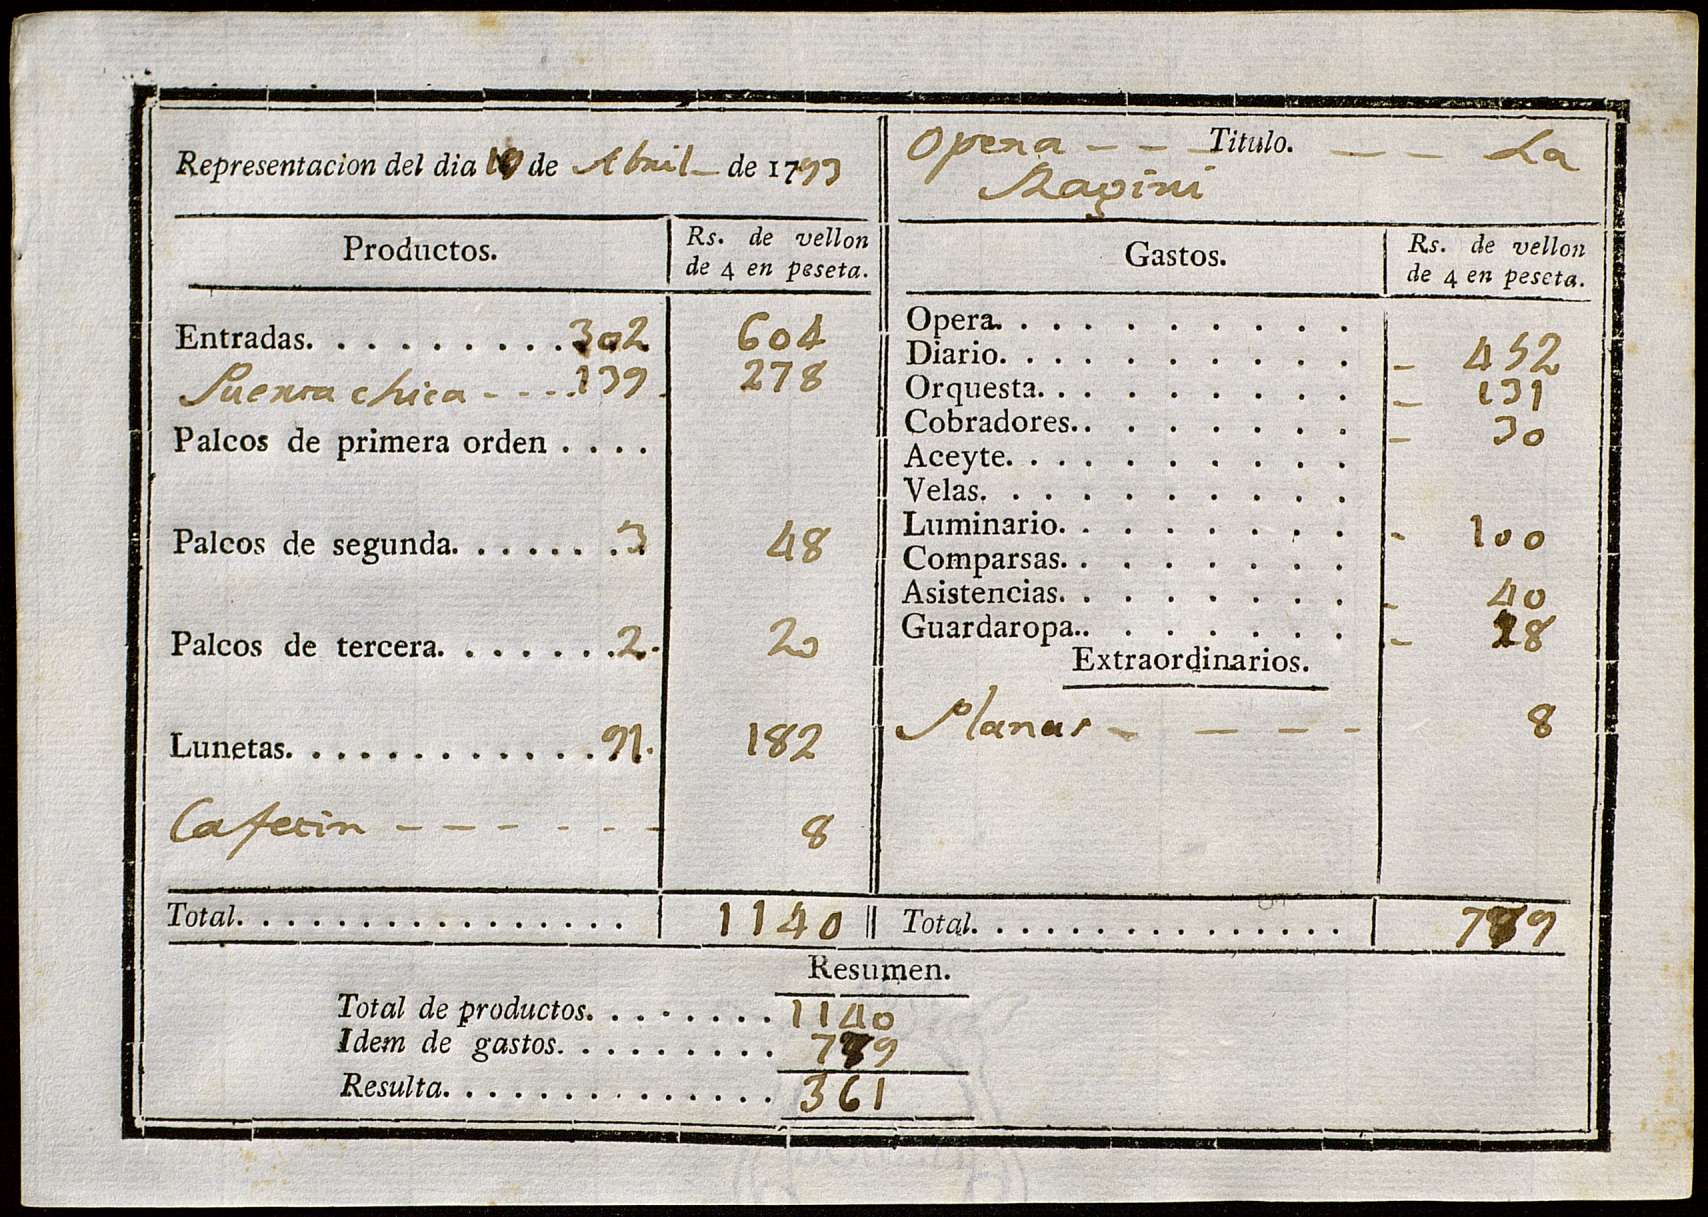 Representacion del dia 10 de Abril de 1793
Opera - - - Titulo. - - - La
Productos.
Rs. de vellon
de 4 en peseta.
Entradas. . . . . . . . . . 302 604
Puerta chica - - - . 139 278
Palcos de primera orden . . . .
Palcos de segunda. . . . . . . 3 48
Palcos de tercera. . . . . . . 2 20
Lunetas. . . . . . . . . . . . . 91 182
Cafetin - - - - - - - 8
Total. . . . . . . . . . . . . . . . . 1140
Gastos.
Rs. de vellon
de 4 en peseta.
Opera. . . . . . . . . .
Diario. . . . . . . . . . - 452
Orquesta. . . . . . . . . - 131
Cobradores.. . . . . . . - 30
Aceyte. . . . . . . . . .
Velas. . . . . . . . . .
Luminario. . . . . . . . - 100
Comparsas. . . . . . . .
Asistencias. . . . . . . . - 40
Guardaropa.. . . . . . . - 18
Extraordinarios.
Planas - - - - - 8
Total. . . . . . . . . . . . . . . . 779
Resumen.
Total de productos. . . . . . . . 1140
Idem de gastos. . . . . . . . . . 779
Resulta. . . . . . . . . . . . . . . 361